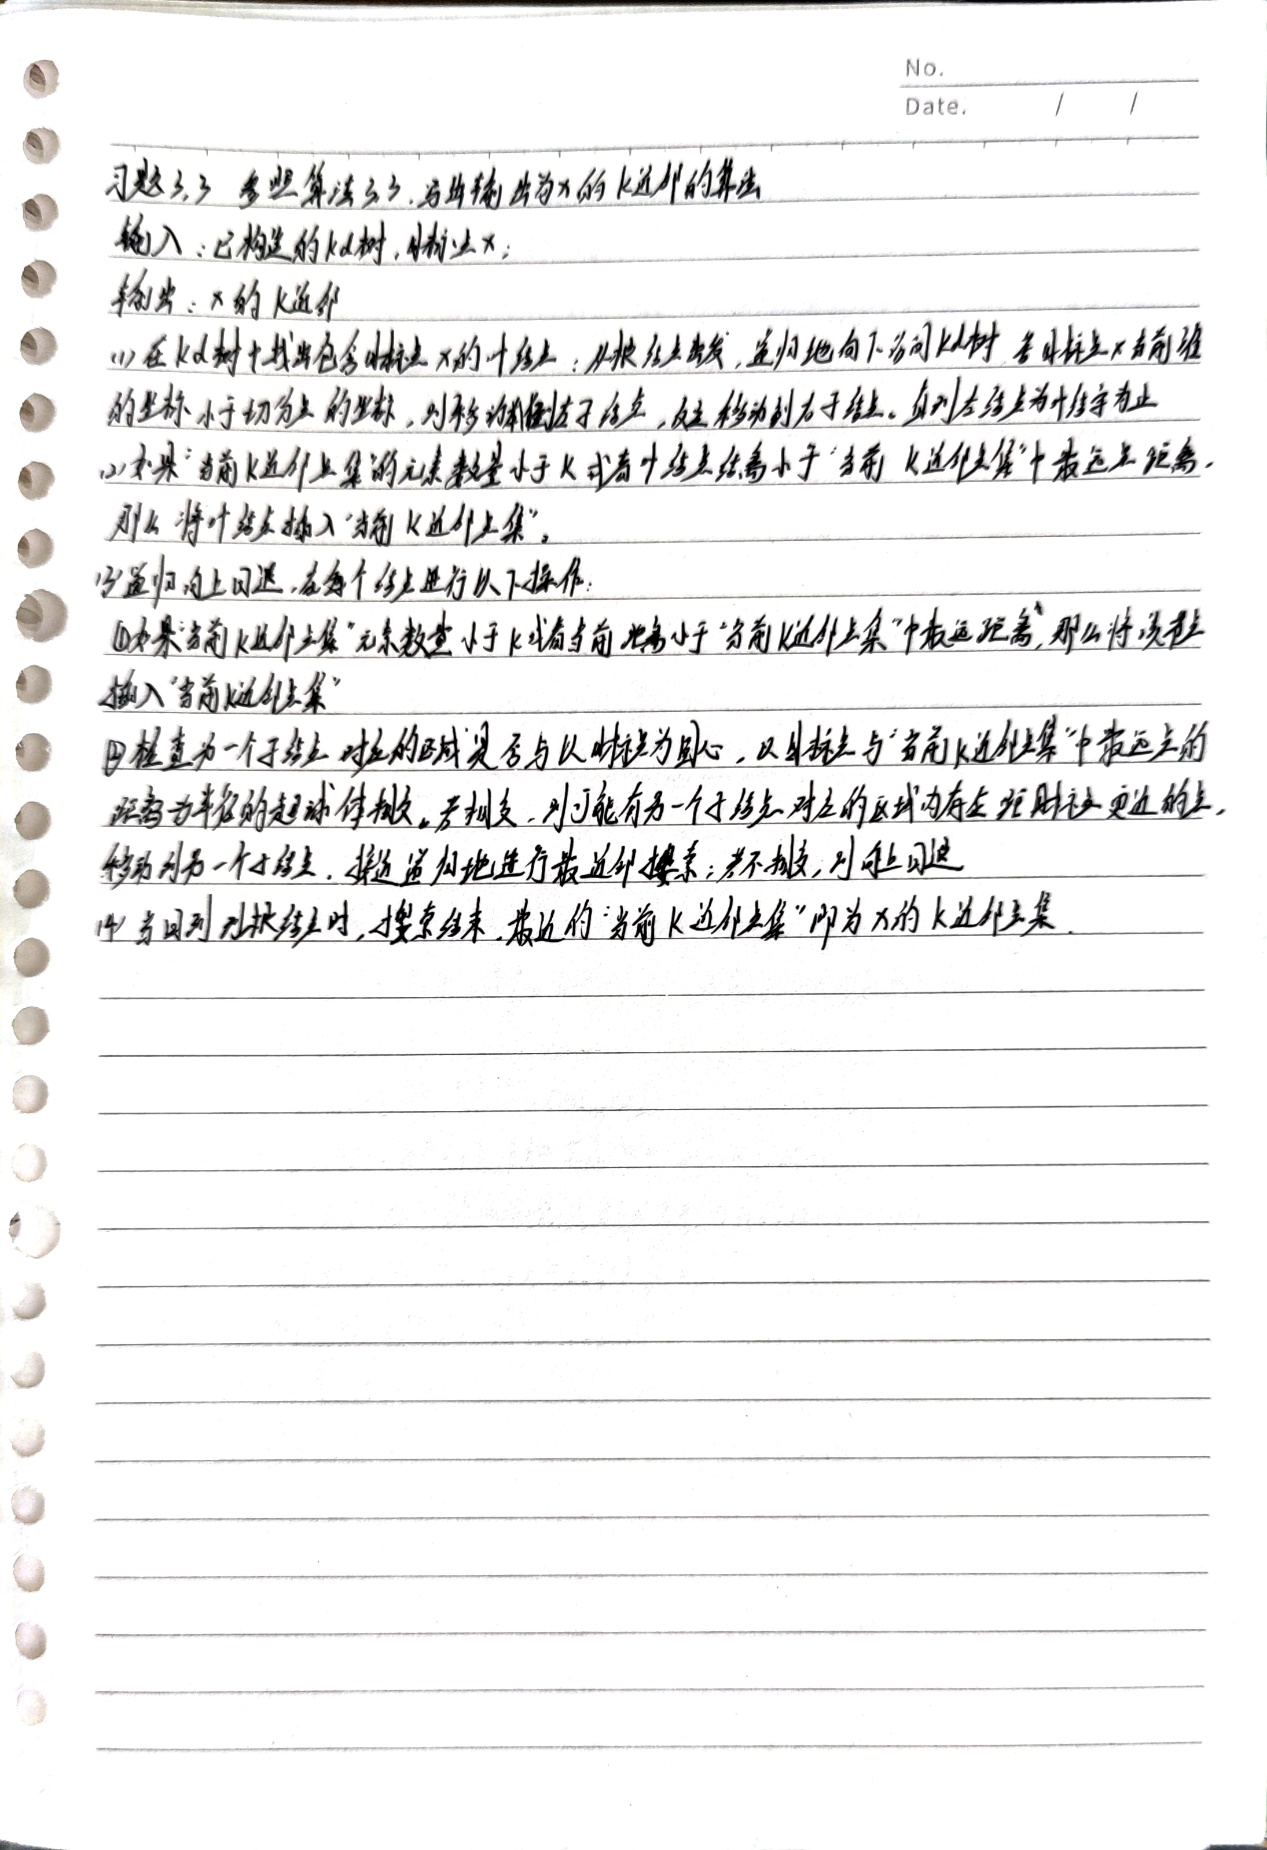 No.
Date. / /
习题3.3 参照算法3.3,写出输出为x的K近邻的算法
输入:已构造的kd树,目标点x;
输出:x的K近邻
(1)在kd树中找出包含目标点x的叶结点:从根结点出发,递归地向下访问kd树 若目标点x当前维
的坐标小于切分点的坐标,则移动到左子结点,反之移动到右子结点。直到左结点为叶结字为止
(2)如果"当前K近邻点集"的元素数量小于K或者叶结点结离小于"当前 K近邻点集"中最远点距离,
那么将叶结点插入"当前K近邻点集"。
(3)递归向上回退,在每个结点进行以下操作:
①如果"当前K近邻点集"元素数量小于K或者当前距离小于"当前K近邻点集"中最远距离,那么将该点
插入"当前K近邻点集"
②检查另一个子结点对应的区域是否与以目标点为圆心,以目标点与"当前K近邻点集"中最远点的
距离为半径的超球体相交。若相交,则可能有另一个子结点对应的区域内存在距目标点更近的点,
移动到另一个子结点,接近递归地进行最近邻搜索;若不相交,则向上回退
(4)当回到到根结点时,搜索结束,最近的"当前K近邻点集"即为x的K近邻点集.